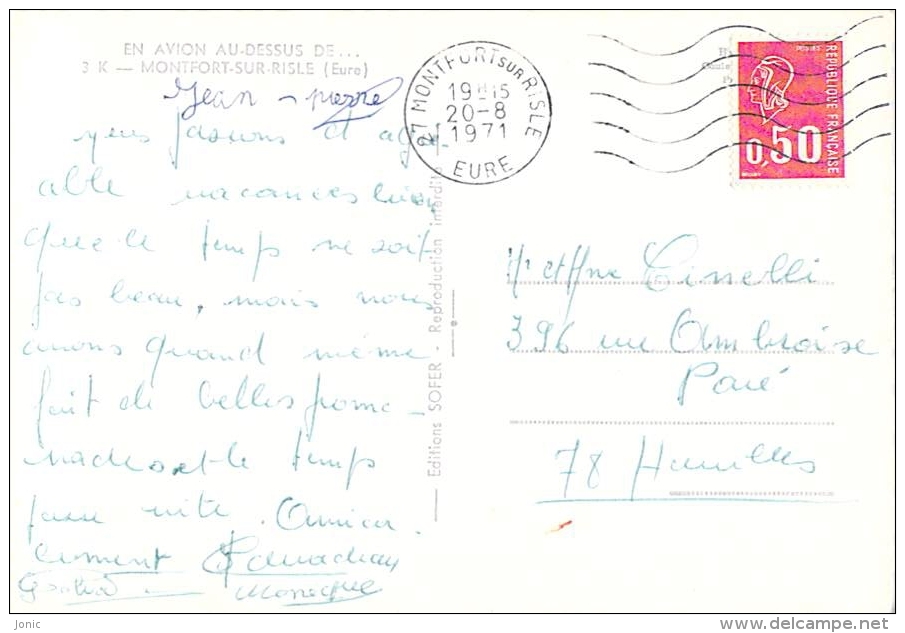 EN AVION AU-DESSUS DE...
3 K — MONTFORT-SUR-RISLE (Eure)
Jean-pierre
nous passons d'agré-
able vacances bien
que le temps ne soit
pas beau, mais nous
avons quand même
fait de belles prome-
nades et le temps
passe vite. Amica-
lement
Monique
Editions SOFER - Reproduction interdite
27 MONTFORT SUR RISLE
19H15
20-8
1971
EURE
REPUBLIQUE FRANÇAISE
0,50
Mr et Mme Cinelli
396 rue Ambroise
Paré
78 Houilles
Jonic
www.delcampe.net